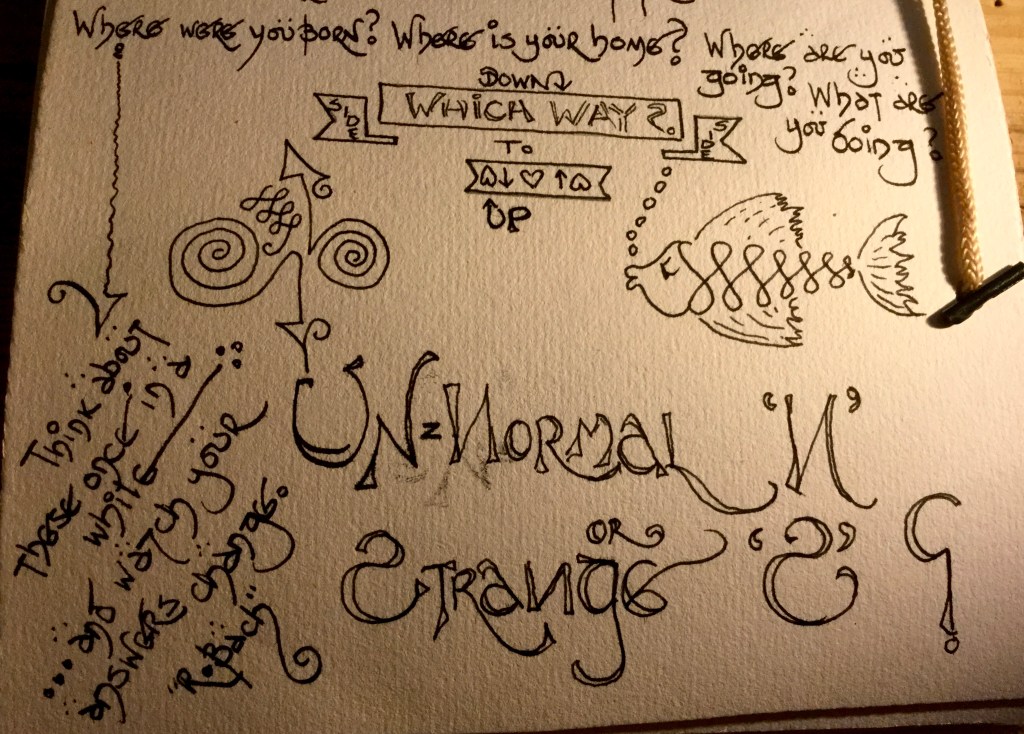 Where were you Born? Where is your home? Where are you
going? What are
you doing?
DOWN↴
SIDE WHICH WAY?. SIDE
TO
↓ ♡ ↑
UP
Think about
These once in a
while
... and watch your
answers change.
"Rob
UN=Normal 'N'
OR
Strange 'S' ?